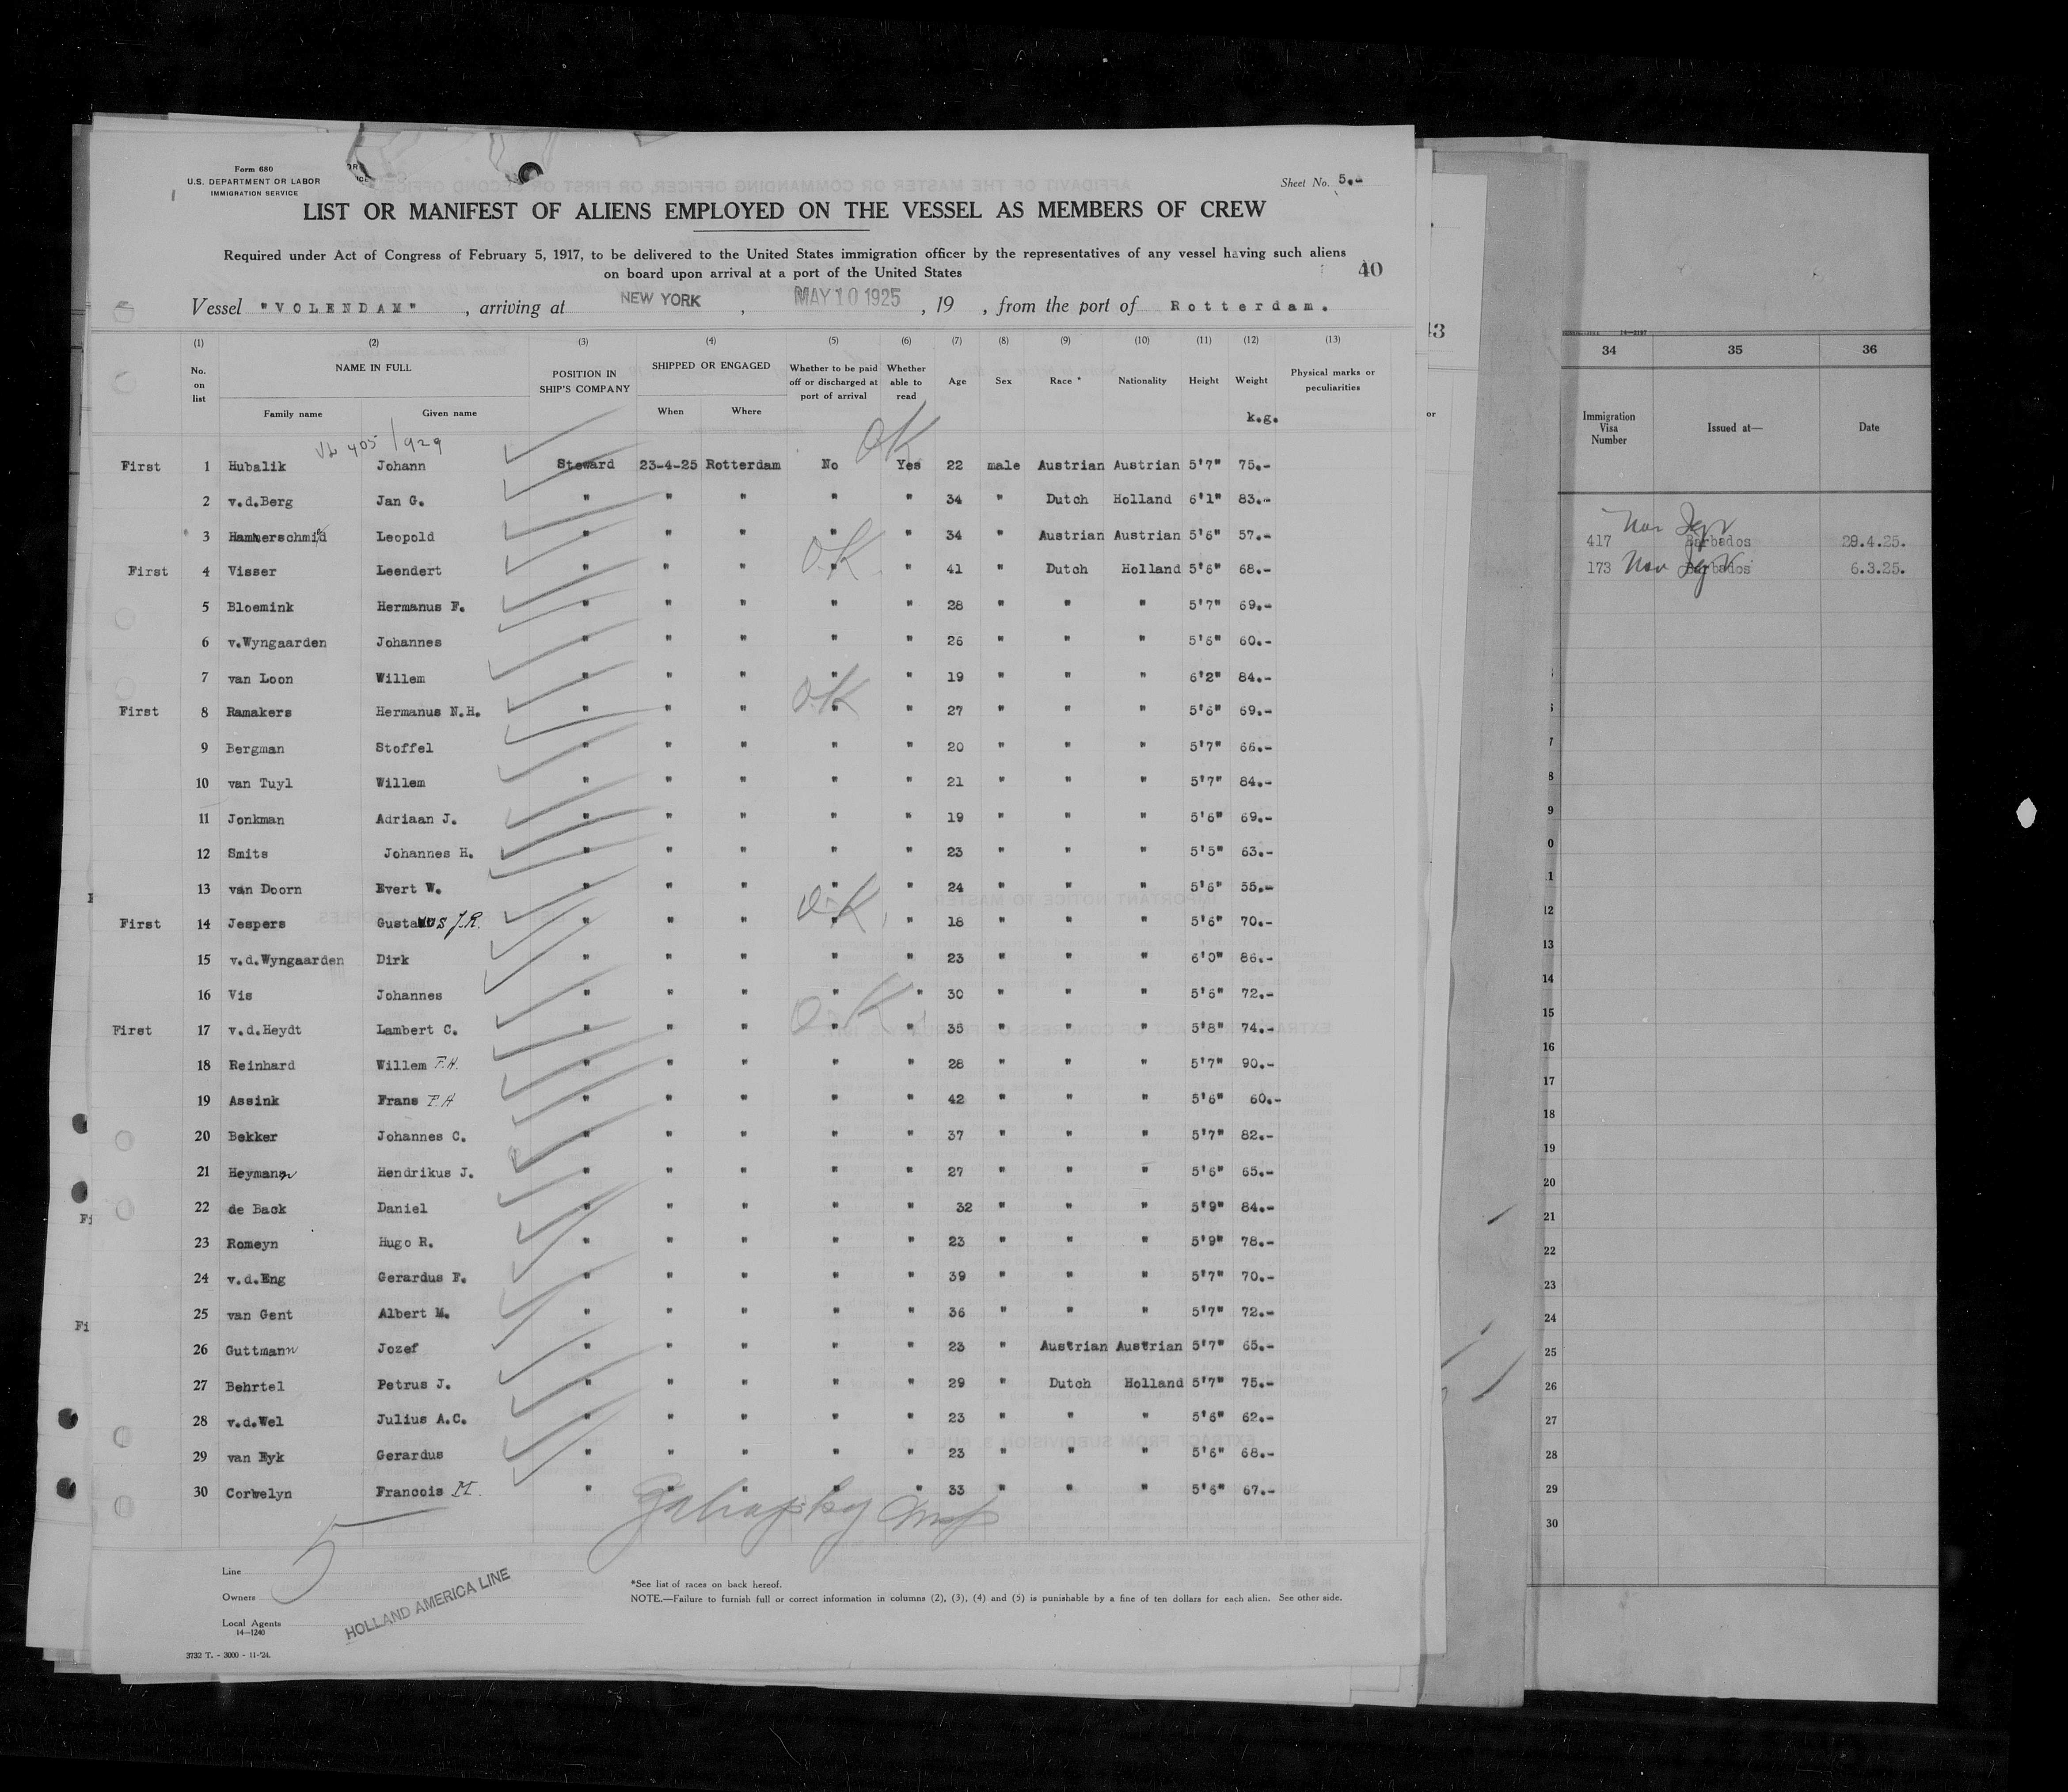 Form 680
U.S. DEPARTMENT OR LABOR
IMMIGRATION SERVICE
Sheet No. 5.-
LIST OR MANIFEST OF ALIENS EMPLOYED ON THE VESSEL AS MEMBERS OF CREW
Required under Act of Congress of February 5, 1917, to be delivered to the United States immigration officer by the representatives of any vessel having such aliens
on board upon arrival at a port of the United States
40
Vessel "VOLENDAM", arriving at NEW YORK, MAY 10 1925, 19 , from the port of Rotterdam.
(1) (2) (3) (4) (5) (6) (7) (8) (9) (10) (11) (12) (13)
No. on list NAME IN FULL Family name Given name POSITION IN SHIP'S COMPANY SHIPPED OR ENGAGED When Where Whether to be paid off or discharged at port of arrival Whether able to read Age Sex Race * Nationality Height Weight k.g. Physical marks or peculiarities
405/929
OK
First 1 Hubalik Johann Steward 23-4-25 Rotterdam No Yes 22 male Austrian Austrian 5'7" 75.-
2 v.d.Berg Jan G. " " " " " 34 " Dutch Holland 6'1" 83.-
3 Hammerschmid Leopold " " " " " 34 " Austrian Austrian 5'6" 57.-
O.K.
First 4 Visser Leendert " " " " " 41 " Dutch Holland 5'6" 68.-
5 Bloemink Hermanus F. " " " " " 28 " " " 5'7" 69.-
6 v.Wyngaarden Johannes " " " " " 26 " " " 5'6" 60.-
7 van Loon Willem " " " " " 19 " " " 6'2" 84.-
O.K
First 8 Ramakers Hermanus N.H. " " " " " 27 " " " 5'6" 69.-
9 Bergman Stoffel " " " " " 20 " " " 5'7" 66.-
10 van Tuyl Willem " " " " " 21 " " " 5'7" 84.-
11 Jonkman Adriaan J. " " " " " 19 " " " 5'6" 69.-
12 Smits Johannes H. " " " " " 23 " " " 5'5" 63.-
13 van Doorn Evert W. " " " " " 24 " " " 5'6" 55.-
O.K.
First 14 Jespers Gustavus J.R. " " " " " 18 " " " 5'6" 70.-
15 v.d.Wyngaarden Dirk " " " " " 23 " " " 6'0" 86.-
16 Vis Johannes " " " " " 30 " " " 5'6" 72.-
O.K.
First 17 v.d.Heydt Lambert C. " " " " " 35 " " " 5'8" 74.-
18 Reinhard Willem F.H. " " " " " 28 " " " 5'7" 90.-
19 Assink Frans F.H " " " " " 42 " " " 5'6" 60.-
20 Bekker Johannes C. " " " " " 37 " " " 5'7" 82.-
21 Heymann Hendrikus J. " " " " " 27 " " " 5'6" 65.-
22 de Back Daniel " " " " " 32 " " " 5'9" 84.-
23 Romeyn Hugo R. " " " " " 23 " " " 5'9" 78.-
24 v.d.Eng Gerardus F. " " " " " 39 " " " 5'7" 70.-
25 van Gent Albert M. " " " " " 36 " " " 5'7" 72.-
26 Guttmann Jozef " " " " " 23 " Austrian Austrian 5'7" 65.-
27 Behrtel Petrus J. " " " " " 29 " Dutch Holland 5'7" 75.-
28 v.d.Wel Julius A.C. " " " " " 23 " " " 5'6" 62.-
29 van Eyk Gerardus " " " " " 23 " " " 5'6" 68.-
30 Corwelyn Francois M. " " " " " 33 " " " 5'6" 67.-
5
Line
Owners
Local Agents
14—1240
HOLLAND AMERICA LINE
*See list of races on back hereof.
NOTE.—Failure to furnish full or correct information in columns (2), (3), (4) and (5) is punishable by a fine of ten dollars for each alien. See other side.
3732 T. - 3000 - 11-'24.
13
or
14—2187
34 35 36
Immigration Visa Number Issued at— Date
417 Barbados 29.4.25.
173 Barbados 6.3.25.
7
8
9
0
1
12
13
14
15
16
17
18
19
20
21
22
23
24
25
26
27
28
29
30